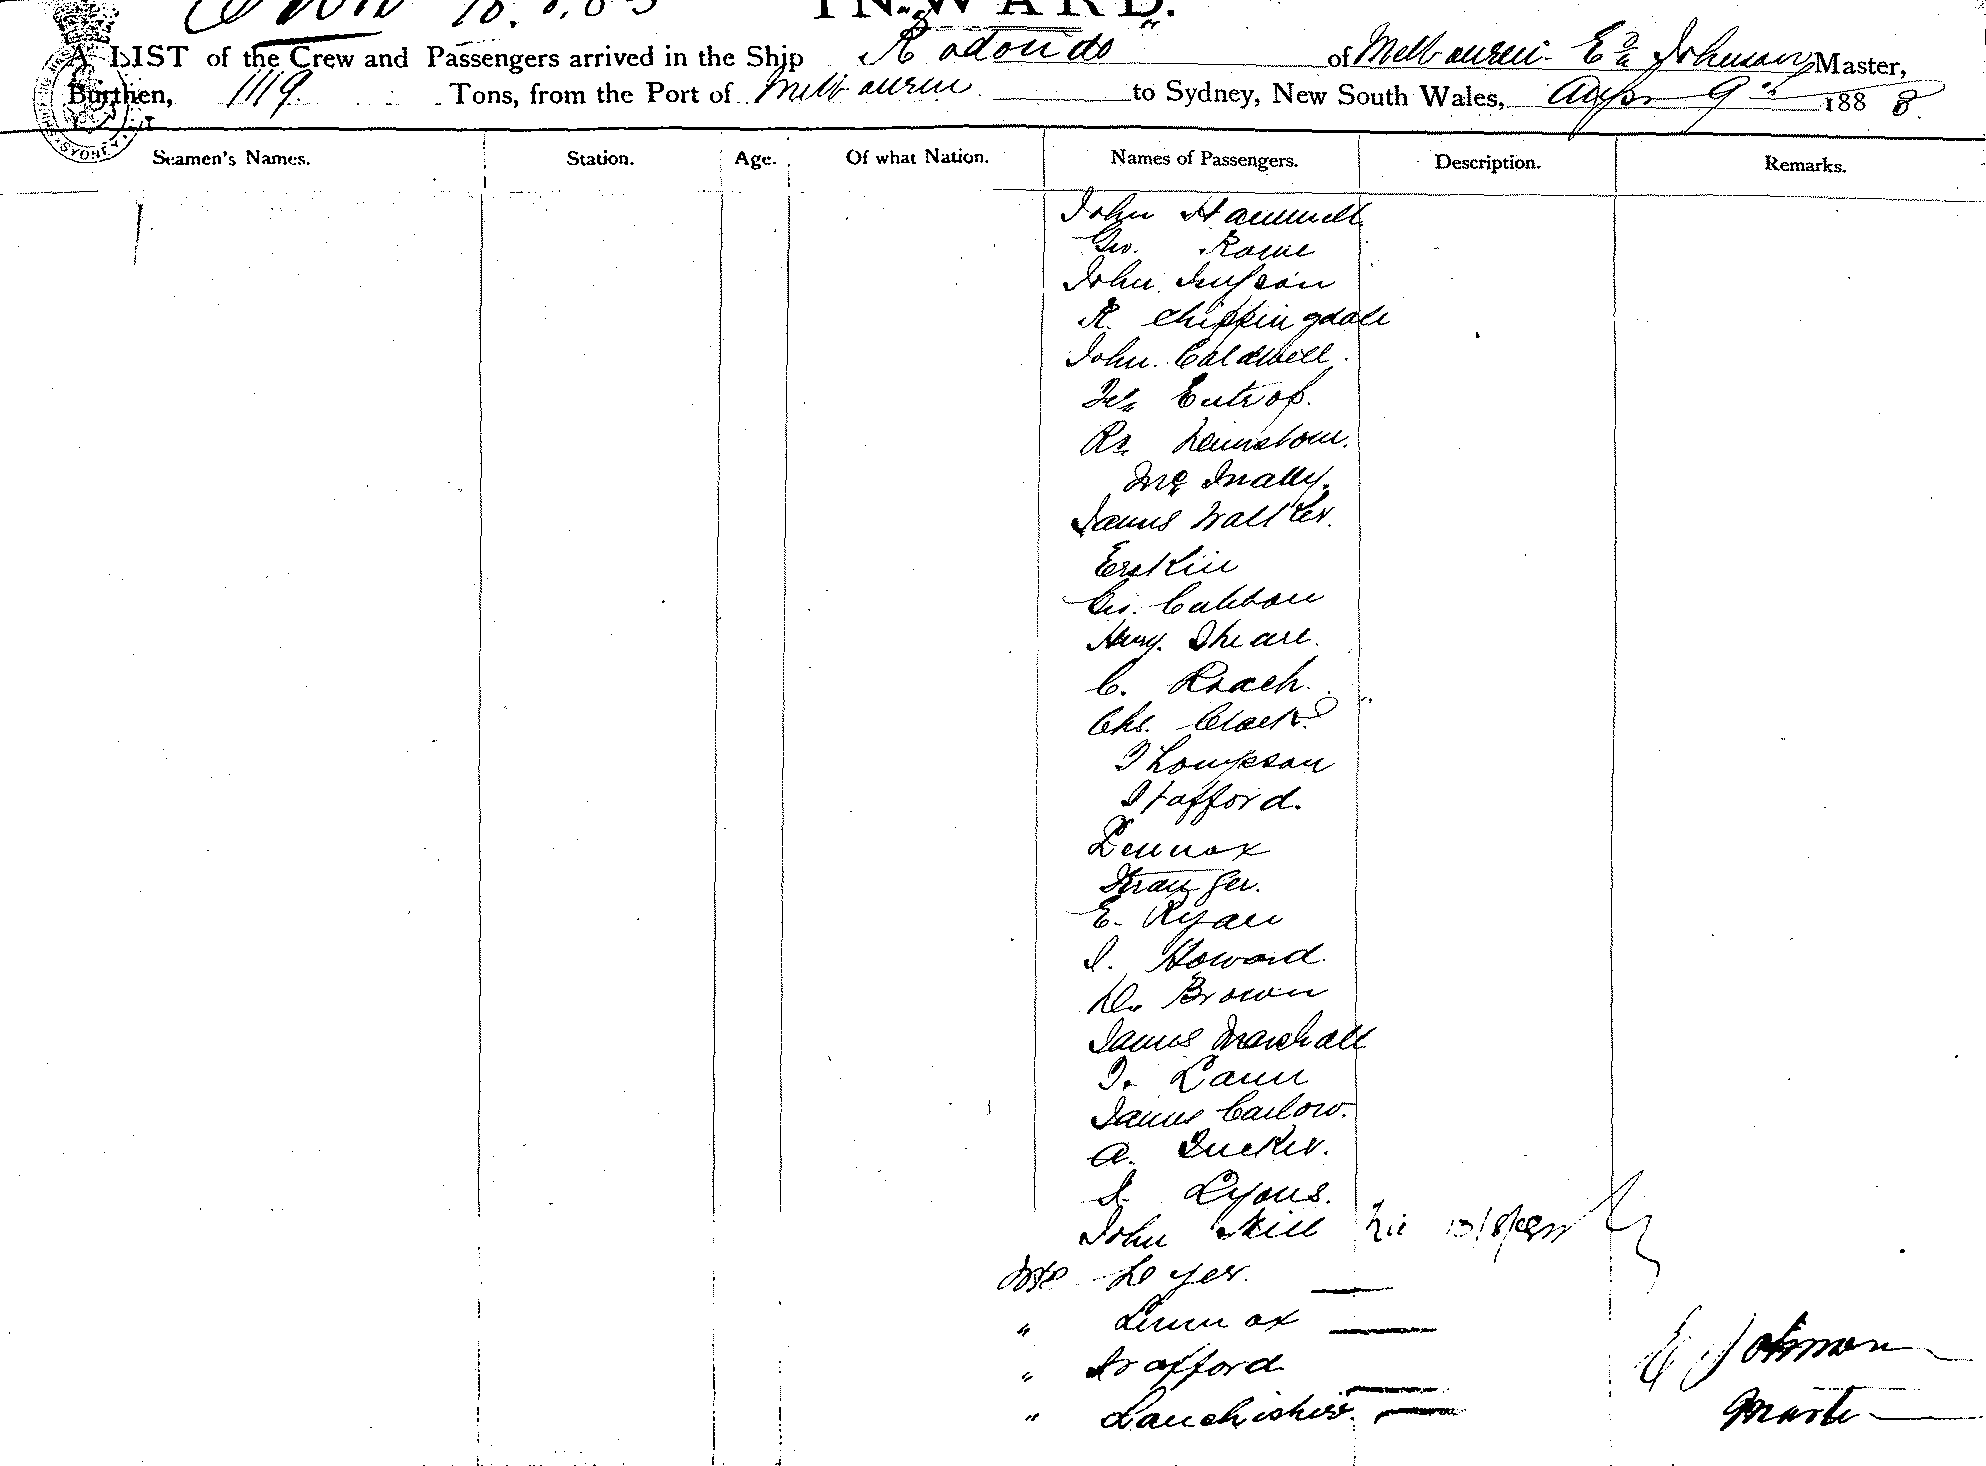 INWARD.
A LIST of the Crew and Passengers arrived in the Ship Rodondo of Melbourne Ed Johnson Master,
Burthen, 1119 Tons, from the Port of Melbourne to Sydney, New South Wales, 9th 1888
Seamen's Names. Station. Age. Of what Nation. Names of Passengers. Description. Remarks.
John Hammill
Geo. Rowe
John
R. Chippingdale
John. Caldwell.
Entrop.
Rt
Mc Nally.
James Walker.
Erskine
Geo. Cubbon
Henry. Sheare.
C. Roach.
Chs. Clark
Thompson
Stafford.
Lennox
Stranger.
E. Ryan
J. Howard.
D. Brown
James Marshall
T. Lann
James Carlow.
A. Tucker.
J. Lyons.
John Skill
Mrs Dyer.
" Lennox
" Stafford
"
E Johnson
Master